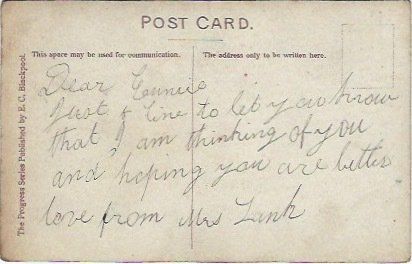 POST CARD.
This space may be used for communication.
The address only to be written here.
The Progress Series Published by E. C., Blackpool.
Dear Connie
Just a line to let you know
that I am thinking of you
and hoping you are better
love from Mrs